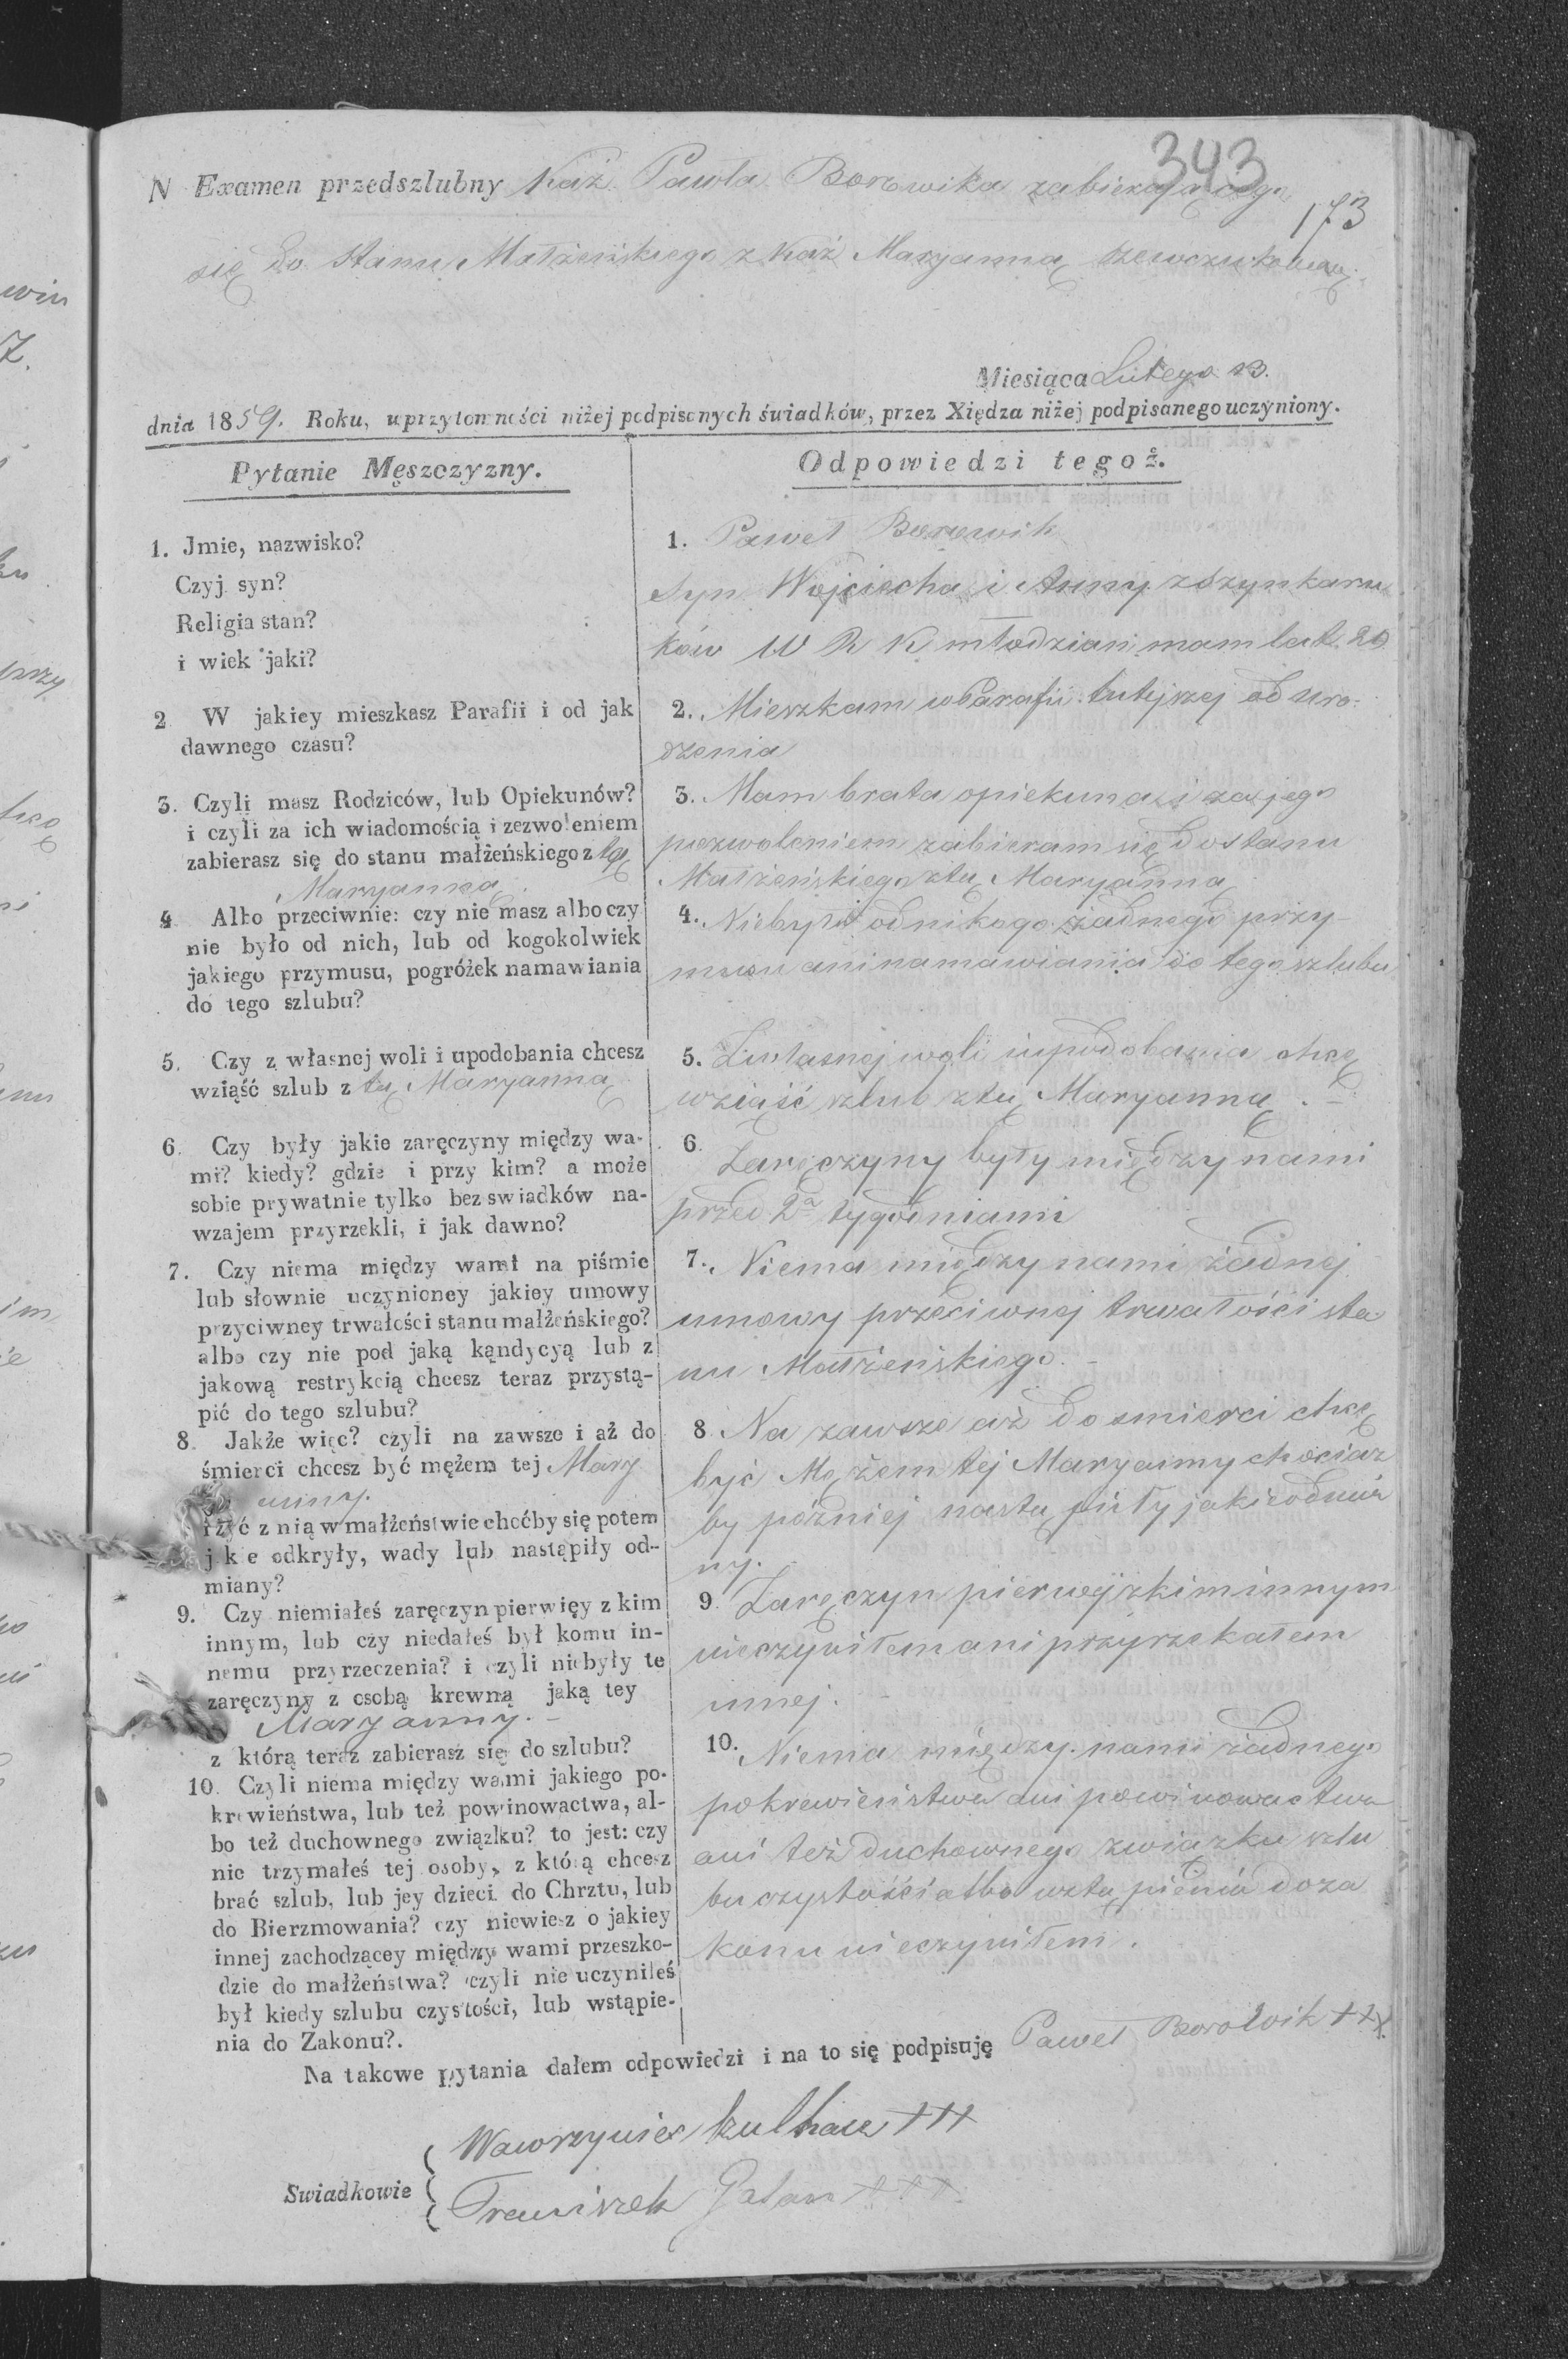 343
N Examen przedszlubny Kaź. Pawła Borowika zabierającego
173
się do stanu Małżeńskiego z Kaź Maryanną
Miesiąca Lutego 13.
dnia 1859. Roku, uprzytomności niżej podpisanych świadków, przez Xiędza niżej podpisanego uczyniony.
Pytanie Męszczyzny.
1. Jmie, nazwisko?
Czyj syn?
Religia stan?
i wiek jaki?
2 W jakiey mieszkasz Parafii i od jak
dawnego czasu?
3. Czyli masz Rodziców, lub Opiekunów?
i czyli za ich wiadomością i zezwoleniem
zabierasz się do stanu małżeńskiego z tą
Maryanną
4 Albo przeciwnie: czy nie masz albo czy
nie było od nich, lub od kogokolwiek
jakiego przymusu, pogróżek namawiania
do tego szlubu?
5. Czy z własnej woli i upodobania chcesz
wziąść szlub z tą Maryanną
6. Czy były jakie zaręczyny między wa-
mi? kiedy? gdzie i przy kim? a może
sobie prywatnie tylko bez swiadków na-
wzajem przyrzekli, i jak dawno?
7. Czy niema między wami na piśmie
lub słownie uczynioney jakiey umowy
przyciwney trwałości stanu małżeńskiego?
albo czy nie pod jaką kąndycyą lub z
jakową restrykcią chcesz teraz przystą-
pić do tego szlubu?
8. Jakże więc? czyli na zawsze i aż do
śmierci chcesz być mężem tej Mary
anny.
i żyć z nią w małżeństwie choćby się potem
jakie odkryły, wady lub nastąpiły od-
miany?
9. Czy niemiałeś zaręczyn pierwięy z kim
innym, lub czy niedałeś był komu in-
nemu przyrzeczenia? i czyli niebyły te
zaręczyny z osobą krewną jaką tey
Maryanny. -
z którą teraz zabierasz się do szlubu?
10. Czyli niema między wami jakiego po-
krewieństwa, lub też powinowactwa, al-
bo też duchownego związku? to jest: czy
nie trzymałeś tej osoby, z którą chcesz
brać szlub, lub jey dzieci do Chrztu, lub
do Bierzmowania? czy niewiesz o jakiey
innej zachodzącey między wami przeszko-
dzie do małżeństwa? czyli nie uczyniłeś
był kiedy szlubu czystości, lub wstąpie-
nia do Zakonu?.
Odpowiedzi tegoż.
1. Paweł Borowik
syn Wojciecha i Anny z Szynkaru
ków W R K młodzian mam lat 20
2. Mieszkam w Parafii tutejszej od uro-
dzenia
3. Mam brata opiekuna i za jego
pozwoleniem zabieram się do stanu
Małżeńskiego z tą Maryanną
4. Niebyło od nikogo żadnego przy-
musu ani namawiania do tego szlubu
5. Z własnej woli i upodobania chcę
wziąść szlub z tą Maryanną. -
6. Zaręczyny były między nami
przed 2a tygodniami
7. Niema między nami żadnej
umowy przeciwnej trwałości sta
nu Małżeńskiego. -
8. Na zawsze aż do smierci chcę
być Mężem tej Maryanny chociaż
by później nastąpiły jakie odmia
ny.
9. Zaręczyn pierwej z kim innym
nieczyniłem ani przyrzekałem
innej.
10. Niema między nami żadnego
pokrewieństwa ani powinowactwa
ani też duchownego związku szlu
bu czystości albo wstąpienia do za
konu nieczyniłem.
Na takowe pytania dałem odpowiedzi i na to się podpisuję Paweł Borowik +++
Swiadkowie
Wawrzyniec +++
Franciszek Gałan +++